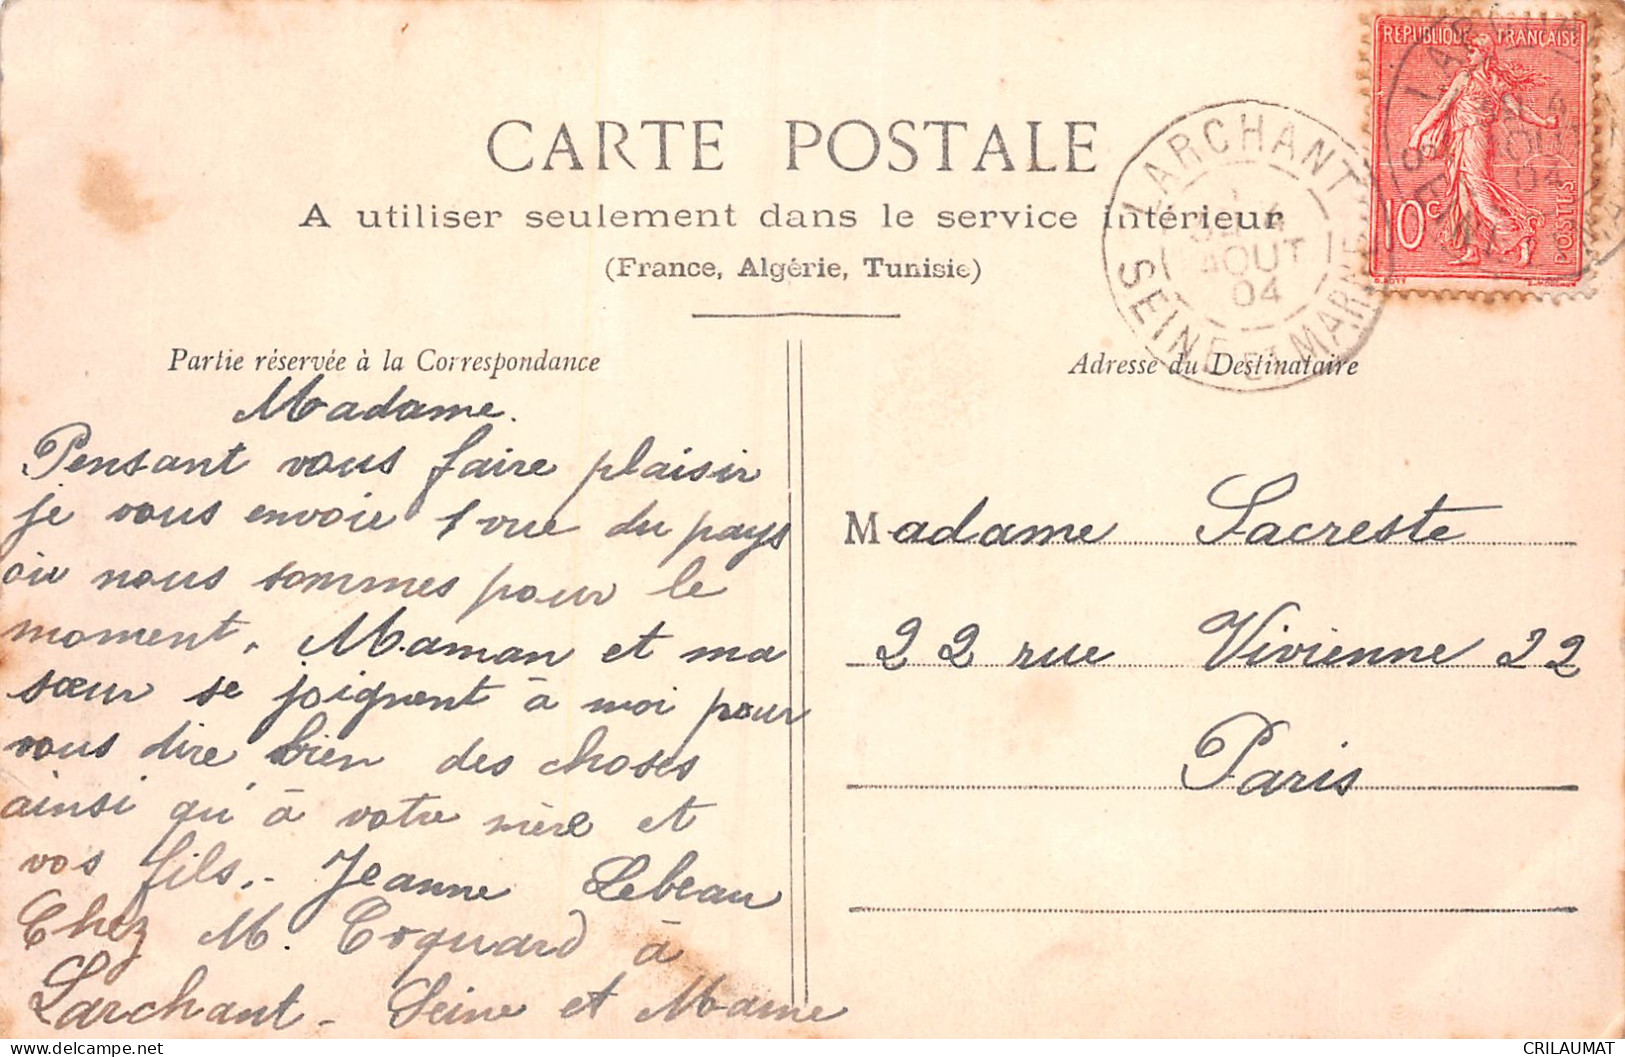 CARTE POSTALE
A utiliser seulement dans le service intérieur
(France, Algérie, Tunisie)
Partie réservée à la Correspondance
Madame.
Pensant vous faire plaisir
je vous envoie 1 vue du pays
où nous sommes pour le
moment. Maman et ma
sœur se joignent à moi pour
vous dire bien des choses
ainsi qu'à votre mère et
vos fils.- Jeanne Lebeau
Chez M. Coquard à
Larchant - Seine et Marne
Adresse du Destinataire
Madame Lacreste
22 rue Vivienne 22
Paris
REPUBLIQUE FRANÇAISE
10c
POSTES
LARCHANT
4
AOUT
04
SEINE ET MARNE
CRILAUMAT